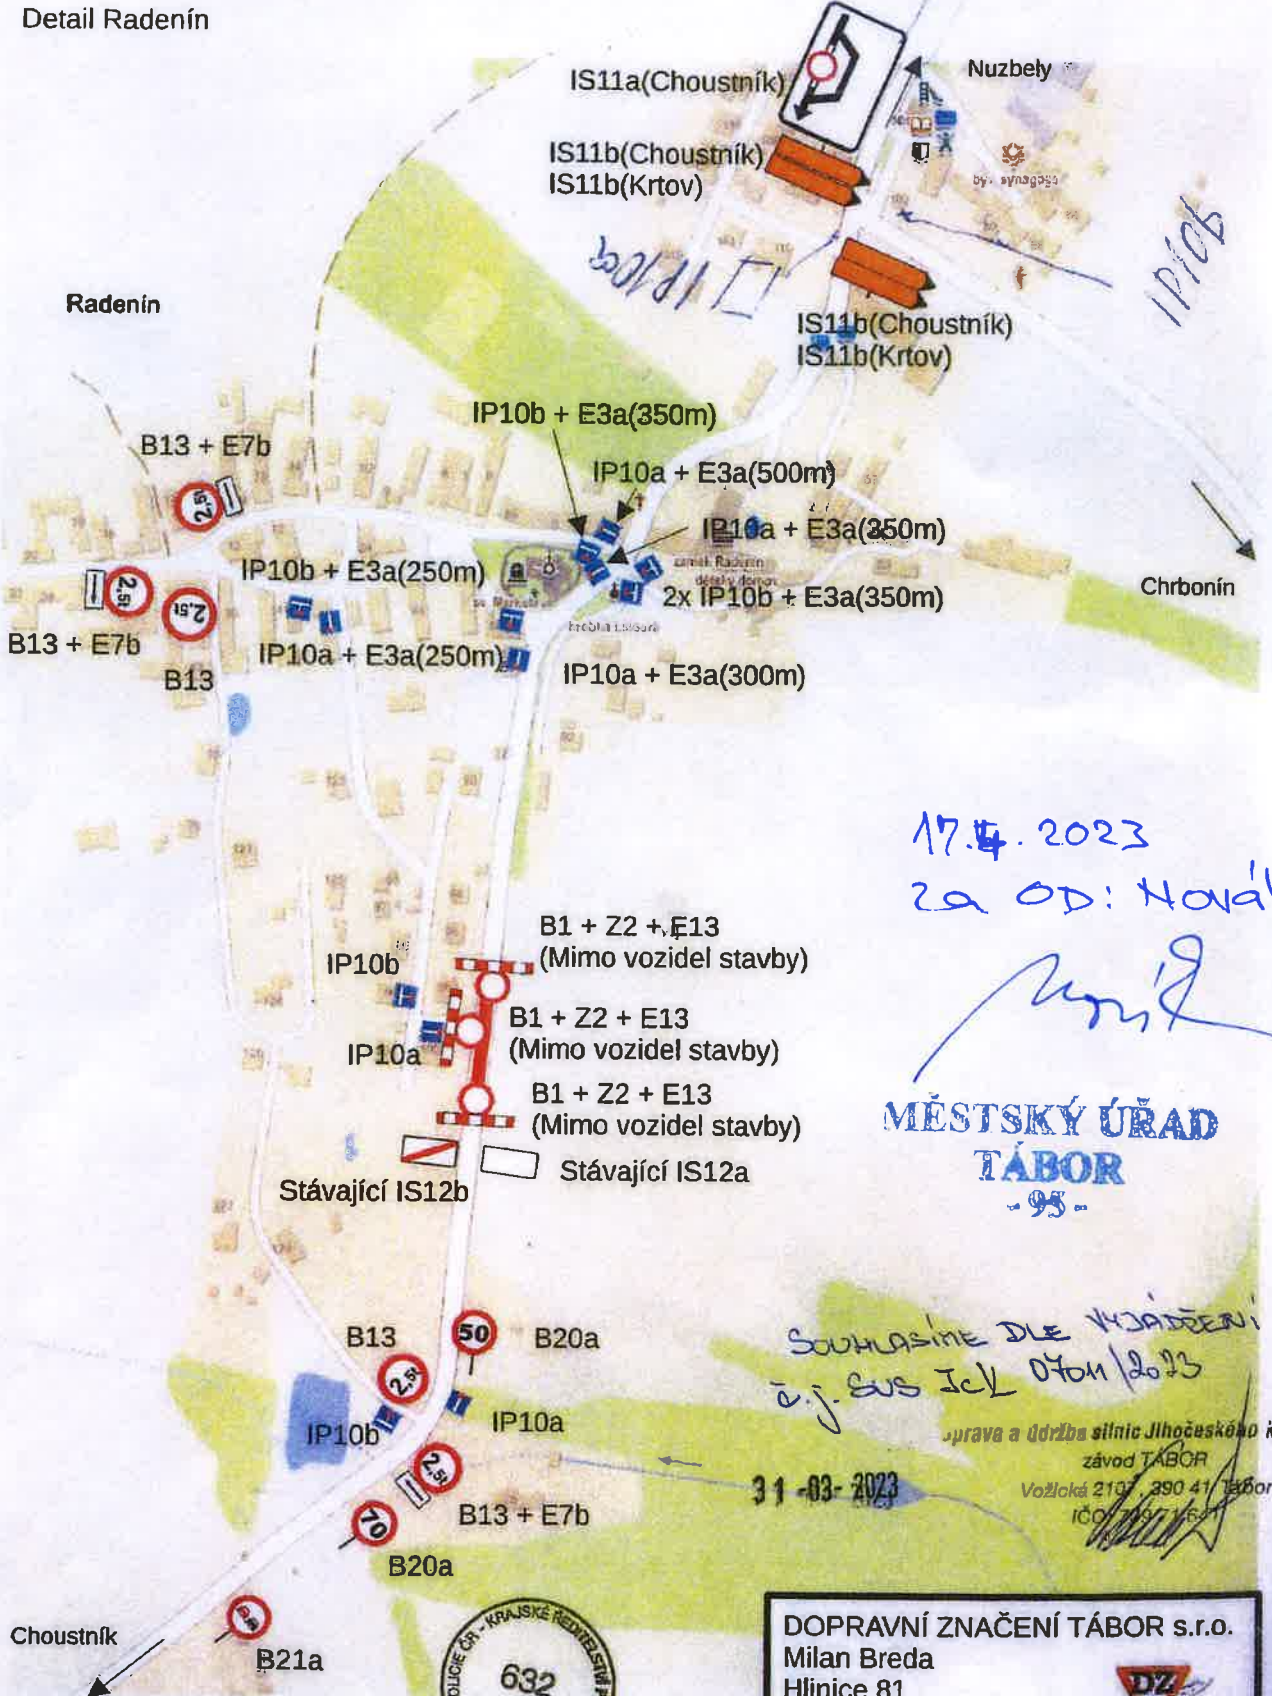 Detail Radenín
IS11a(Choustník)
Nuzbely
IS11b(Choustník)
IS11b(Krtov)
býv. synagoga
IP10a
IP10b
Radenín
IS11b(Choustník)
IS11b(Krtov)
IP10b + E3a(350m)
B13 + E7b
IP10a + E3a(500m)
2,5t
IP10a + E3a(350m)
zámek Radenín
dětský domov
IP10b + E3a(250m)
Chrbonín
2x IP10b + E3a(350m)
2,5t
2,5t
B13 + E7b
IP10a + E3a(250m)
IP10a + E3a(300m)
B13
17.4. 2023
za OD: Novák
B1 + Z2 + E13
(Mimo vozidel stavby)
IP10b
B1 + Z2 + E13
(Mimo vozidel stavby)
IP10a
B1 + Z2 + E13
(Mimo vozidel stavby)
MĚSTSKÝ ÚŘAD
TÁBOR
- 95 -
Stávající IS12a
Stávající IS12b
B13
50
B20a
SOUHLASÍME DLE VYJÁDŘENÍ
č.j. SUS JcK 07011/2023
2,5t
IP10a
IP10b
správa a údržba silnic Jihočeského k
závod TÁBOR
2,5t
31 -03- 2023
Vožická 2107, 390 41 Tábor
IČO
B13 + E7b
70
B20a
Choustník
B21a
POLICIE ČR - KRAJSKÉ ŘEDITELSTVÍ P
632
DOPRAVNÍ ZNAČENÍ TÁBOR s.r.o.
Milan Breda
Hlinice 81
DZ